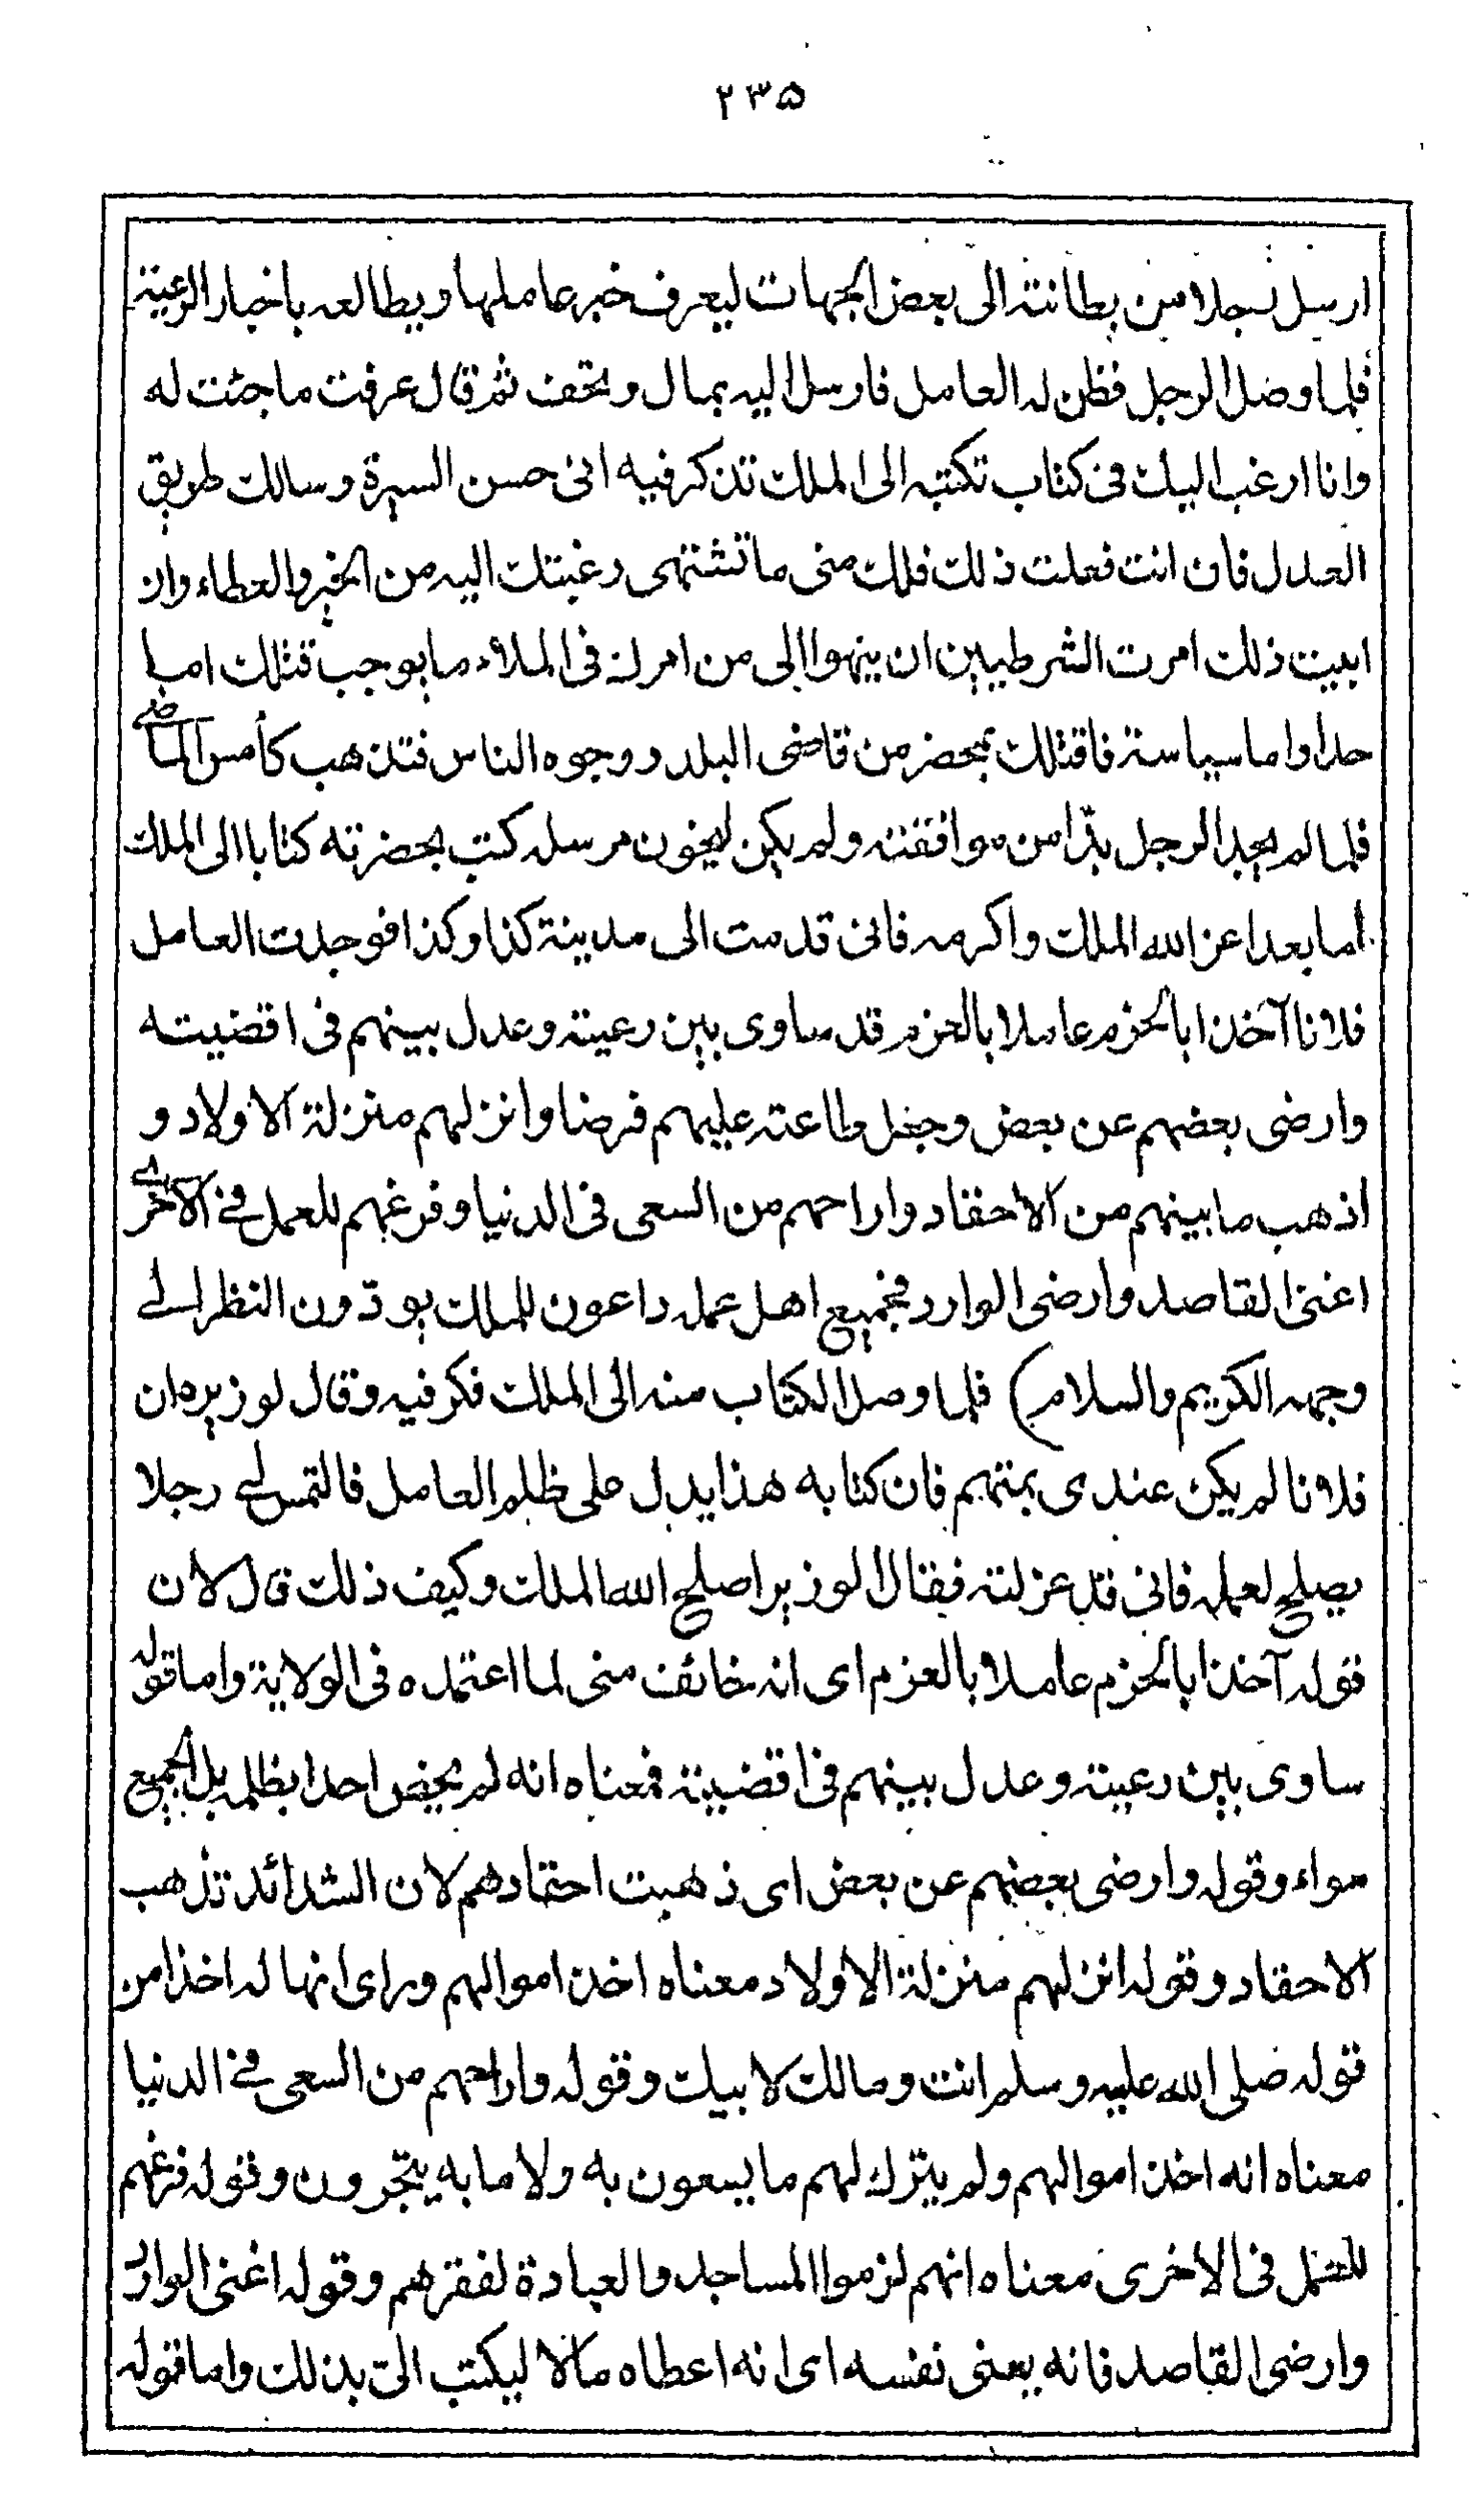 ٢٣٥
ارسل رجلا من بطانته الى بعض الجهات ليعرف خبر عاملها ويطالعه باخبار الرعية
فلما وصل الرجل فطن له العامل فارسل اليه بمال وتحف ثم قال عرفت ما جئت له
وانا ارغب اليك فى كتاب تكتبه الى الملك تذكر فيه انى حسن السيرة وسالك طريق
العدل فان انت فعلت ذلك فلك منى ما تشتهى رغبتك اليه من الخير والعطاء وان
ابيت ذلك امرت الشرطيين ان ينهوا الى من امرك فى الملاء ما يوجب قتلك اما
حدا واما سياسة فاقتلك بمحضر من قاضى البلد ووجوه الناس فتذهب كأمس الماضى
فلما لم يجد الرجل بدّا من موافقته ولم يكن ليخون مرسله كتب بحضرته كتابا الى الملك
اما بعد اعز الله الملك واكرمه فانى قدمت الى مدينة كذا وكذا فوجدت العامل
فلانا آخذا بالحزم عاملا بالعزم قد ساوى بين رعيته وعدل بينهم فى اقضيته
وارضى بعضهم عن بعض وجعل طاعته عليهم فرضا وانزلهم منزلة الاولاد و
اذهب ما بينهم من الاحقاد واراحهم من السعى فى الدنيا وفرغهم للعمل فى الاخرى
اغنى القاصد وارضى الوارد فجميع اهل عمله داعون للملك يودّون النظر الى
وجهه الكريم والسلام) فلما وصل الكتاب منه الى الملك فكر فيه وقال لوزيره ان
فلانا لم يكن عندى بمتهم فان كتابه هذا يدل على ظلم العامل فالتمس لى رجلا
يصلح لعمله فانى قد عزلته فقال الوزير اصلح الله الملك وكيف ذلك قال لان
قوله آخذا بالحزم عاملا بالعزم اى انه خائف منى لما اعتمده فى الولاية واما قوله
ساوى بين رعيته وعدل بينهم فى اقضيته فمعناه انه لم يخص احدا بظلمه بل الجميع
سواء وقوله وارضى بعضهم عن بعض اى ذهبت احقادهم لان الشدائد تذهب
الاحقاد وقوله انزلهم منزلة الاولاد معناه اخذ اموالهم وراى انها له اخذا من
قوله صلى الله عليه وسلم انت ومالك لابيك وقوله واراحهم من السعى فى الدنيا
معناه انه اخذ اموالهم ولم يترك لهم ما يسعون به ولا ما به يتجرون وقوله فرغهم
للعمل فى الاخرى معناه انهم لزموا المساجد والعبادة لفقرهم وقوله اغنى الوارد
وارضى القاصد فانه يعنى نفسه اى انه اعطاه مالا ليكتب الىّ بذلك واما قوله